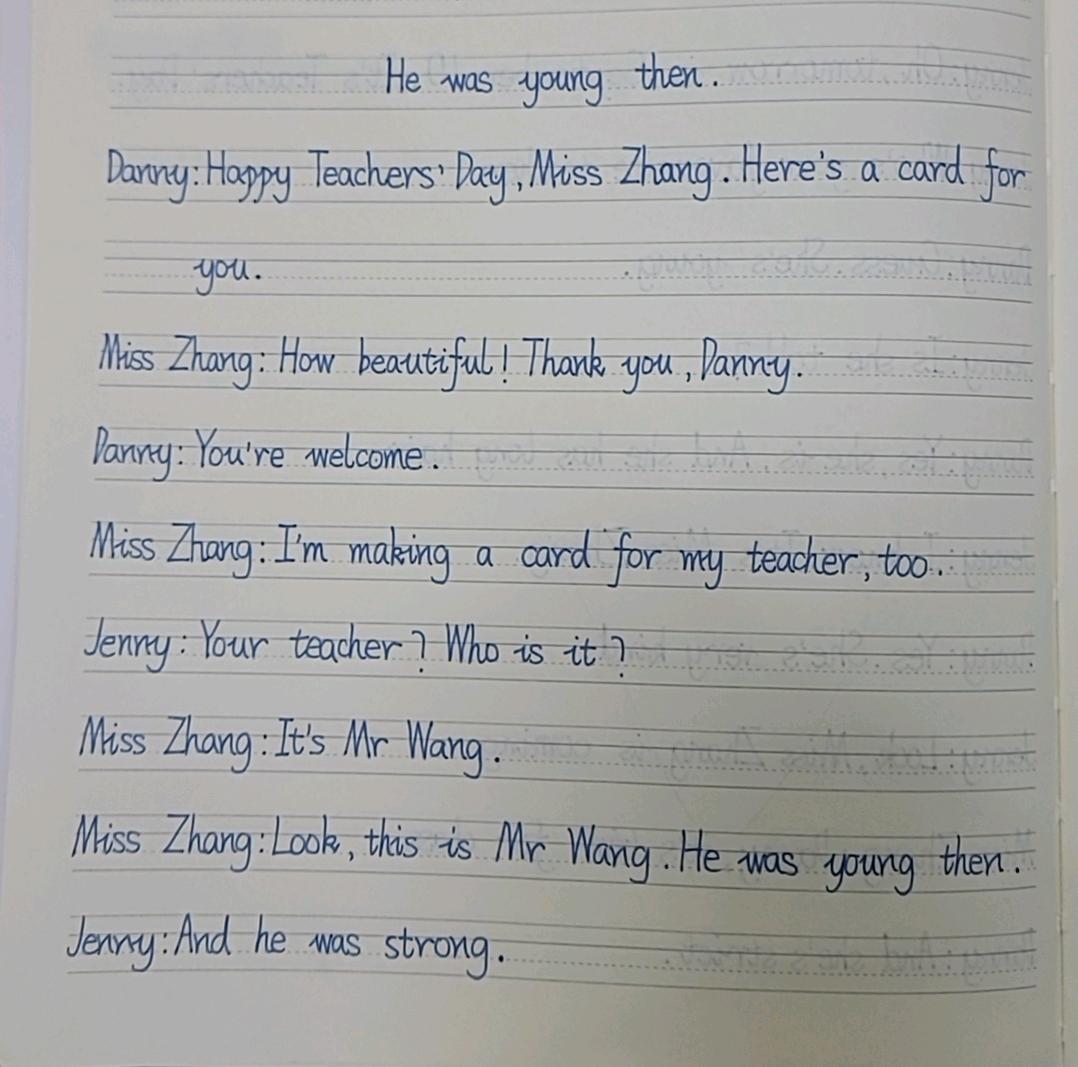 He was young then.
Danny: Happy Teachers' Day, Miss Zhang. Here's a card for
you.
Miss Zhang: How beautiful! Thank you, Danny.
Danny: You're welcome.
Miss Zhang: I'm making a card for my teacher, too.
Jenny: Your teacher? Who is it?
Miss Zhang: It's Mr Wang.
Miss Zhang: Look, this is Mr Wang. He was young then.
Jenny: And he was strong.